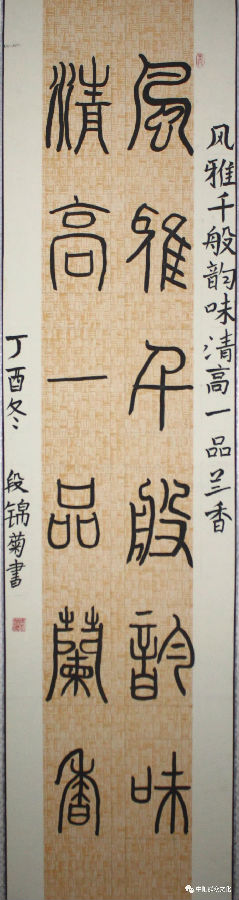 风雅千般韵味清高一品兰香
風雅千般韵味
清高一品蘭香
丁酉冬 段锦菊書